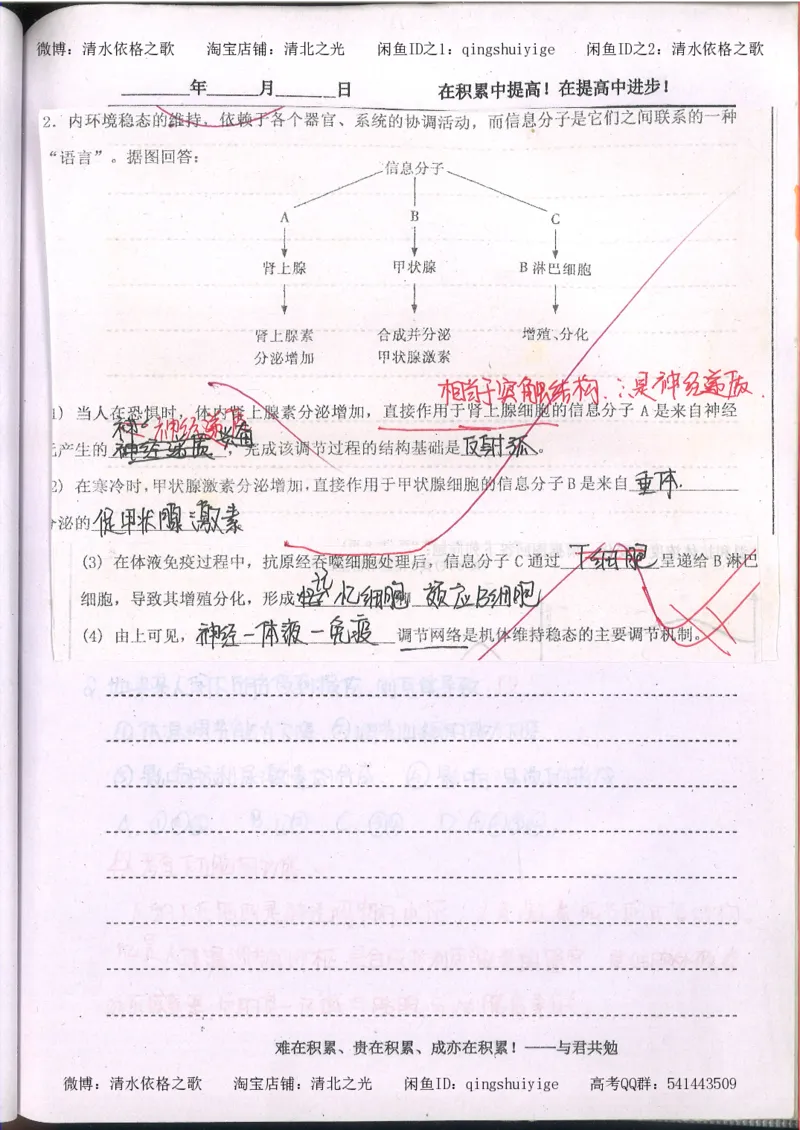 微博：清水依格之歌 淘宝店铺：清北之光 闲鱼ID之1：qingshuiyige 闲鱼ID之2：清水依格之歌
年 月 日 在积累中提高！在提高中进步！
2. 内环境稳态的维持，依赖于各个器官、系统的协调活动，而信息分子是它们之间联系的一种
“语言”。据图回答：
信息分子
A B C
肾上腺 甲状腺 B淋巴细胞
肾上腺素 合成并分泌 增殖、分化
分泌增加 甲状腺激素
相当于突触结构，∴是神经递质.
1) 当人在恐惧时，体内肾上腺素分泌增加，直接作用于肾上腺细胞的信息分子 A 是来自神经
神经递质
元产生的神经递质，完成该调节过程的结构基础是反射弧。
2) 在寒冷时，甲状腺激素分泌增加，直接作用于甲状腺细胞的信息分子 B 是来自垂体.
分泌的促甲状腺激素
(3) 在体液免疫过程中，抗原经吞噬细胞处理后，信息分子 C 通过T细胞呈递给 B 淋巴
细胞，导致其增殖分化，形成记忆细胞 效应B细胞
(4) 由上可见，神经－体液－免疫调节网络是机体维持稳态的主要调节机制。
难在积累、贵在积累、成亦在积累！——与君共勉
微博：清水依格之歌 淘宝店铺：清北之光 闲鱼ID：qingshuiyige 高考QQ群：541443509